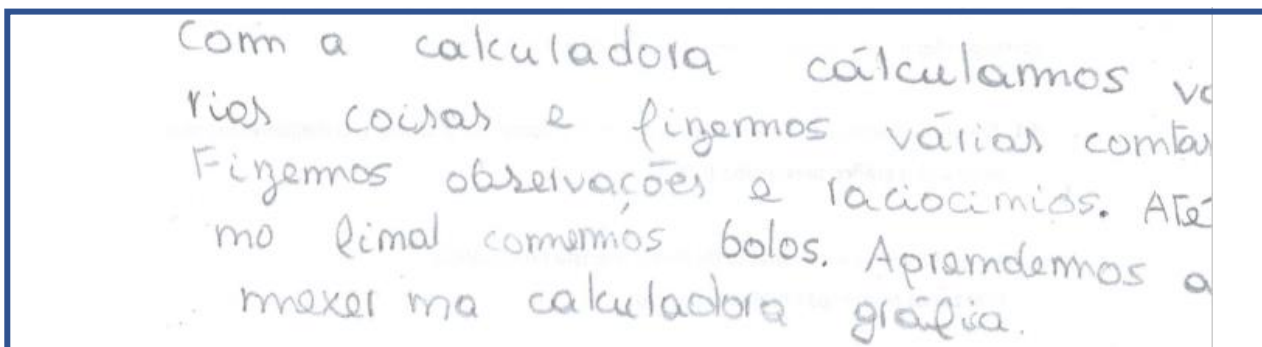 Com a calculadora cálculamos va
rias coisas e fizemos várias contas
Fizemos observações e raciocinios. Até
no final comemos bolos. Aprendemos a
mexer na calculadora gráfica.